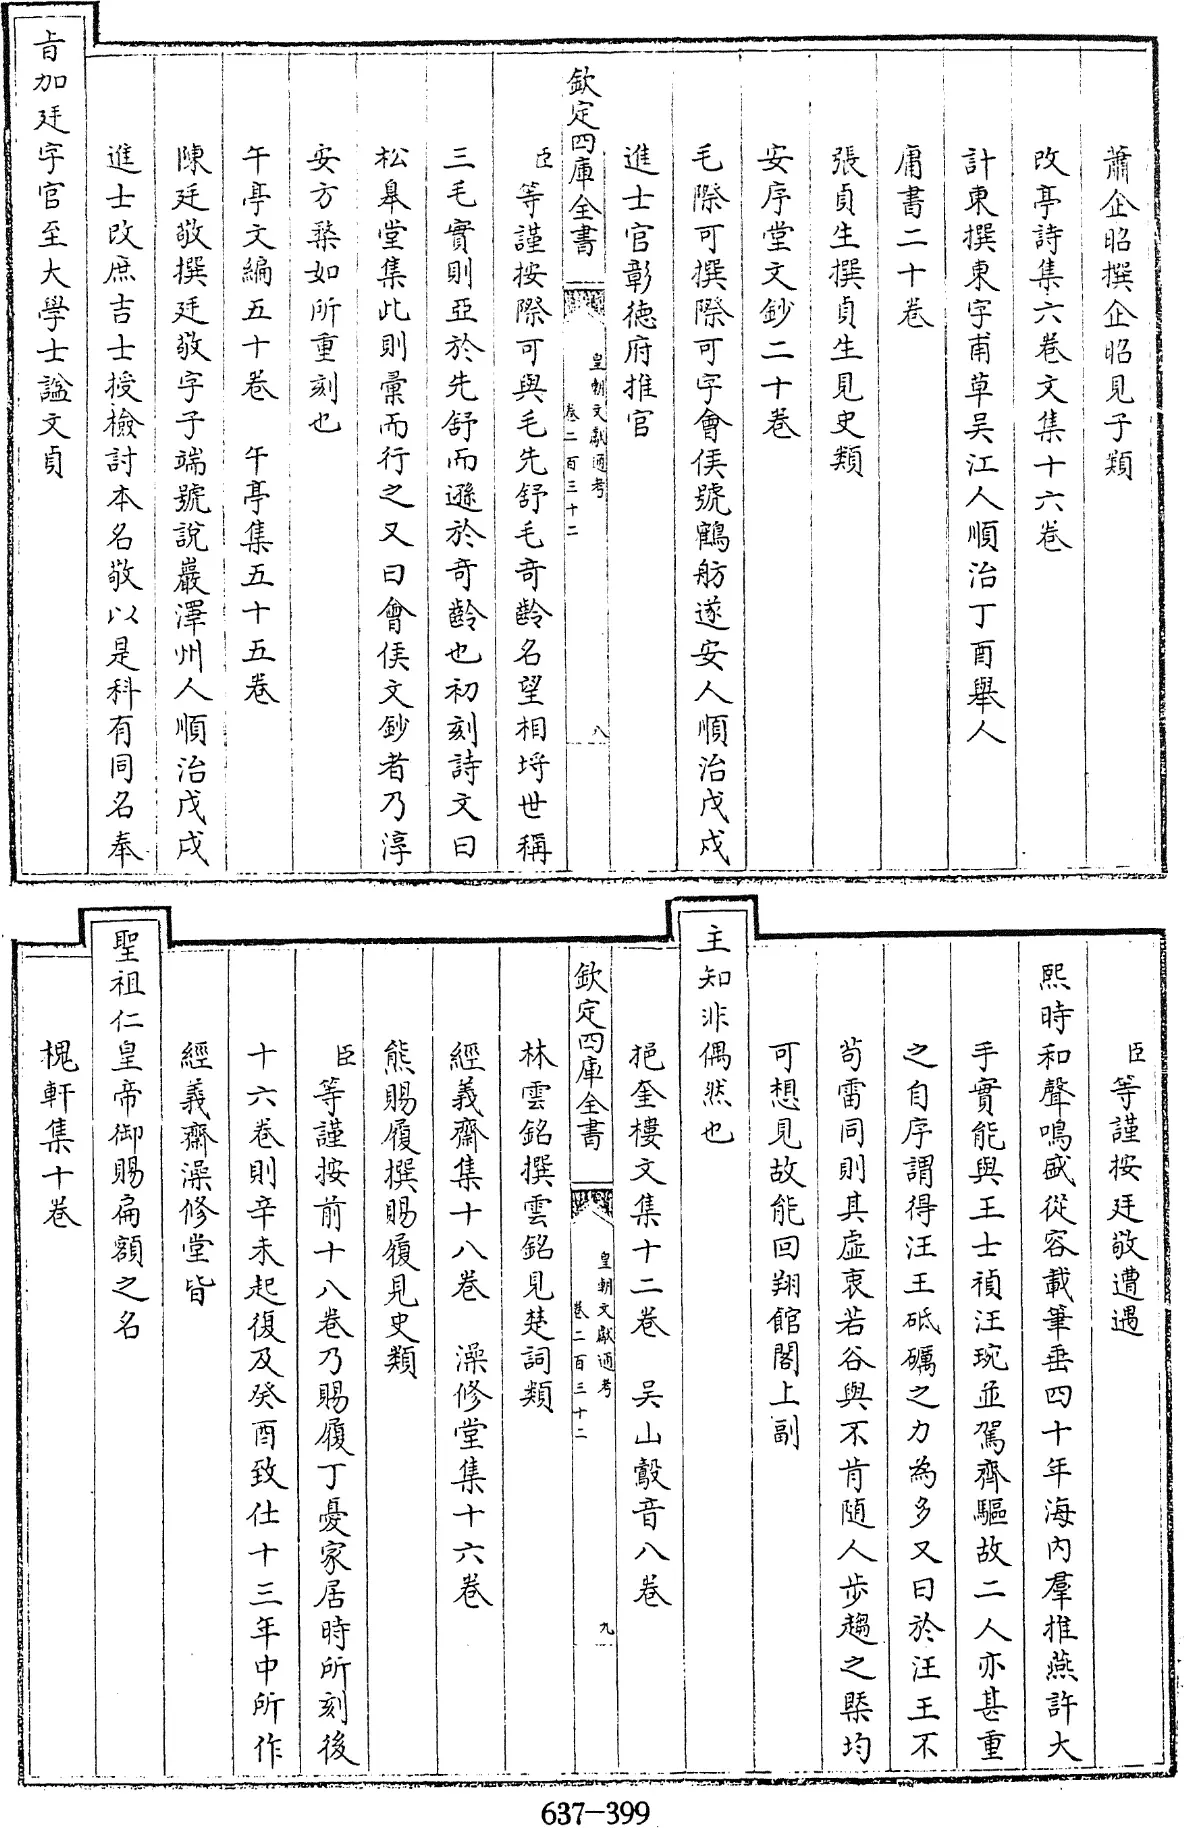 蕭企昭撰企昭見子類
改亭詩集六卷文集十六卷
計東撰東字甫草吴江人順治丁酉舉人
庸書二十卷
張貞生撰貞生見史類
安序堂文鈔二十卷
毛際可撰際可字會侯號鶴舫遂安人順治戊戌
進士官彰德府推官
欽定四庫全書
皇朝文獻通考
卷二百三十二
八
臣等謹按際可與毛先舒毛奇齡名望相埒世稱
三毛實則亞於先舒而遜於奇齡也初刻詩文曰
松臯堂集此則彙而行之又曰會侯文鈔者乃淳
安方棻如所重刻也
午亭文編五十卷　午亭集五十五卷
陳廷敬撰廷敬字子端號說巖澤州人順治戊戌
進士改庶吉士授檢討本名敬以是科有同名奉
㫖加廷字官至大學士諡文貞
臣等謹按廷敬遭遇
熙時和聲鳴盛從容載筆垂四十年海内羣推燕許大
手實能與王士禎汪琬並駕齊驅故二人亦甚重
之自序謂得汪王砥礪之力為多又曰於汪王不
茍雷同則其虛衷若谷與不肯随人步趨之槩均
可想見故能回翔館閣上副
主知非偶然也
挹奎樓文集十二卷　吴山鷇音八卷
林雲銘撰雲銘見楚詞類
欽定四庫全書
皇朝文獻通考
卷二百三十二
九
經義齋集十八卷　澡修堂集十六卷
熊賜履撰賜履見史類
臣等謹按前十八卷乃賜履丁憂家居時所刻後
十六卷則辛未起復及癸酉致仕十三年中所作
經義齋澡修堂皆
聖祖仁皇帝御賜扁額之名
槐軒集十卷
637-399